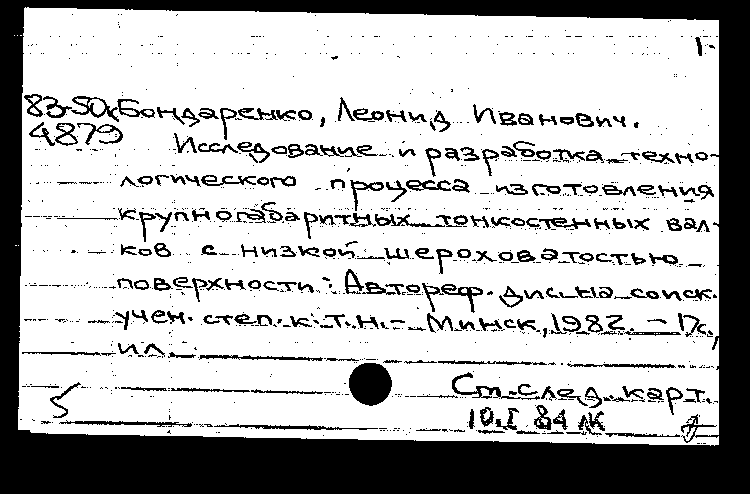 1.
83-50к Бондаренко, Леонид Иванович.
4879
Исследование и разработка техно-
логического процесса изготовления
крупногабаритных тонкостенных вал-
ков с низкой шероховатостью
поверхности: Автореф. дис. на соиск.
учен. степ. к. т. н. - Минск, 1982. - 17с.,
ил.
5
См. след. карт.
10.I 84